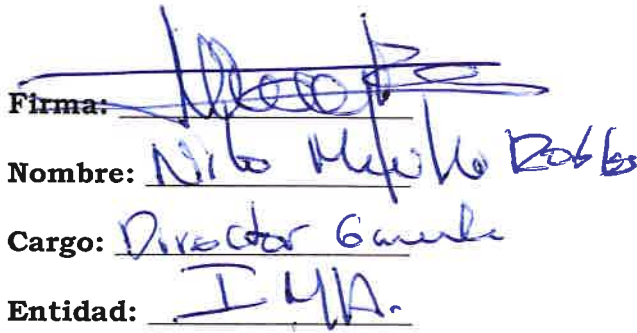 Firma:
Nombre: Nilo Murillo Robles
Cargo: Director General
Entidad: IMA.